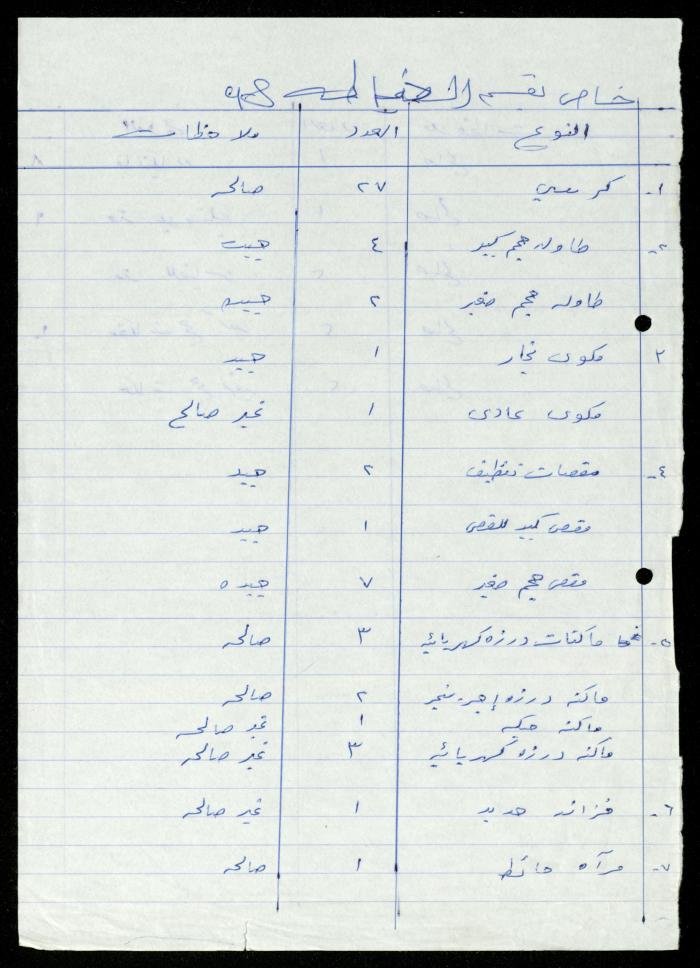 خاص بقسم الخياطه 98
النوع العدد ملاحظات
1- كرسي ٢٧ صالحه
٢- طاوله حجم كبير ٤ جيده
طاوله حجم صغير ٢ جيده
٣ مكوى بخار ١ جيد
مكوى عادى ١ غير صالح
٤- مقصات تنظيف ٢ جيد
مقص كبير للقص ١ جيد
مقص حجم صغير ٧ جيده
٥- ماكنات درزه كهربائيه ٣ صالحه
ماكنه درزه ٢ صالحه
ماكنه حبكه ١ غير صالحه
ماكنه درزه كهربائيه ٣ غير صالحه
٦- خزانه حديد ١ غير صالحه
٧- مرآه حائط ١ صالحه